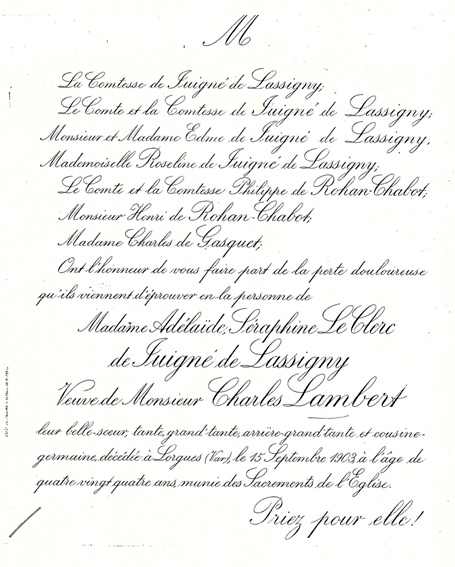 M
La Comtesse de Juigné de Lassigny;
Le Comte et la Comtesse de Juigné de Lassigny;
Monsieur et Madame Edme de Juigné de Lassigny,
Mademoiselle Roseline de Juigné de Lassigny;
Le Comte et la Comtesse Philippe de Rohan-Chabot;
Monsieur Henri de Rohan-Chabot;
Madame Charles de Gasquet;
Ont l'honneur de vous faire part de la perte douloureuse
qu'ils viennent d'éprouver en la personne de
Madame Adélaïde, Séraphine Le Clerc
de Juigné de Lassigny
Veuve de Monsieur Charles Lambert
leur belle-sœur, tante, grand-tante, arrière-grand-tante et cousine-
germaine, décédée à Lorgues (Var), le 15 Septembre 1903, à l'âge de
quatre vingt quatre ans, munie des Sacrements de l'Eglise.
Priez pour elle!